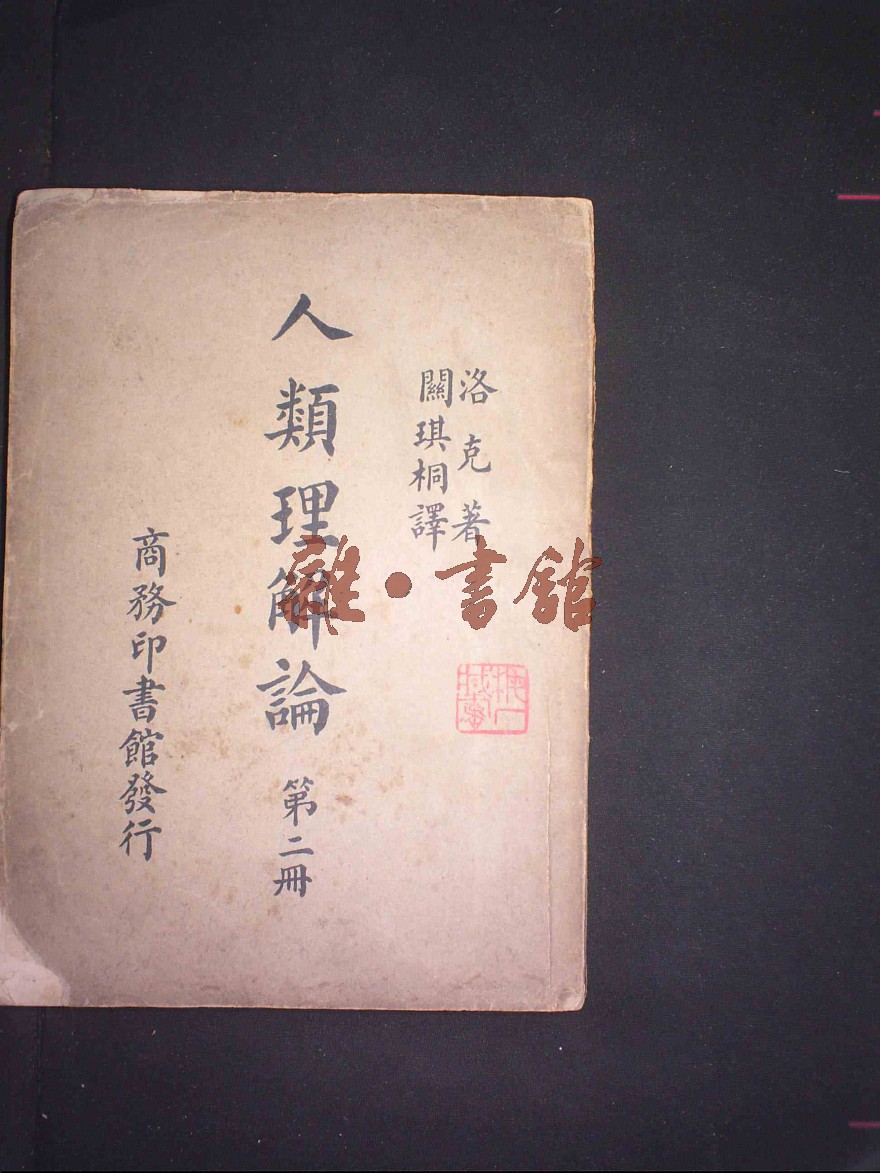 洛克著
關琪桐譯
人類理解論 第二冊
商務印書館發行
雜·書館